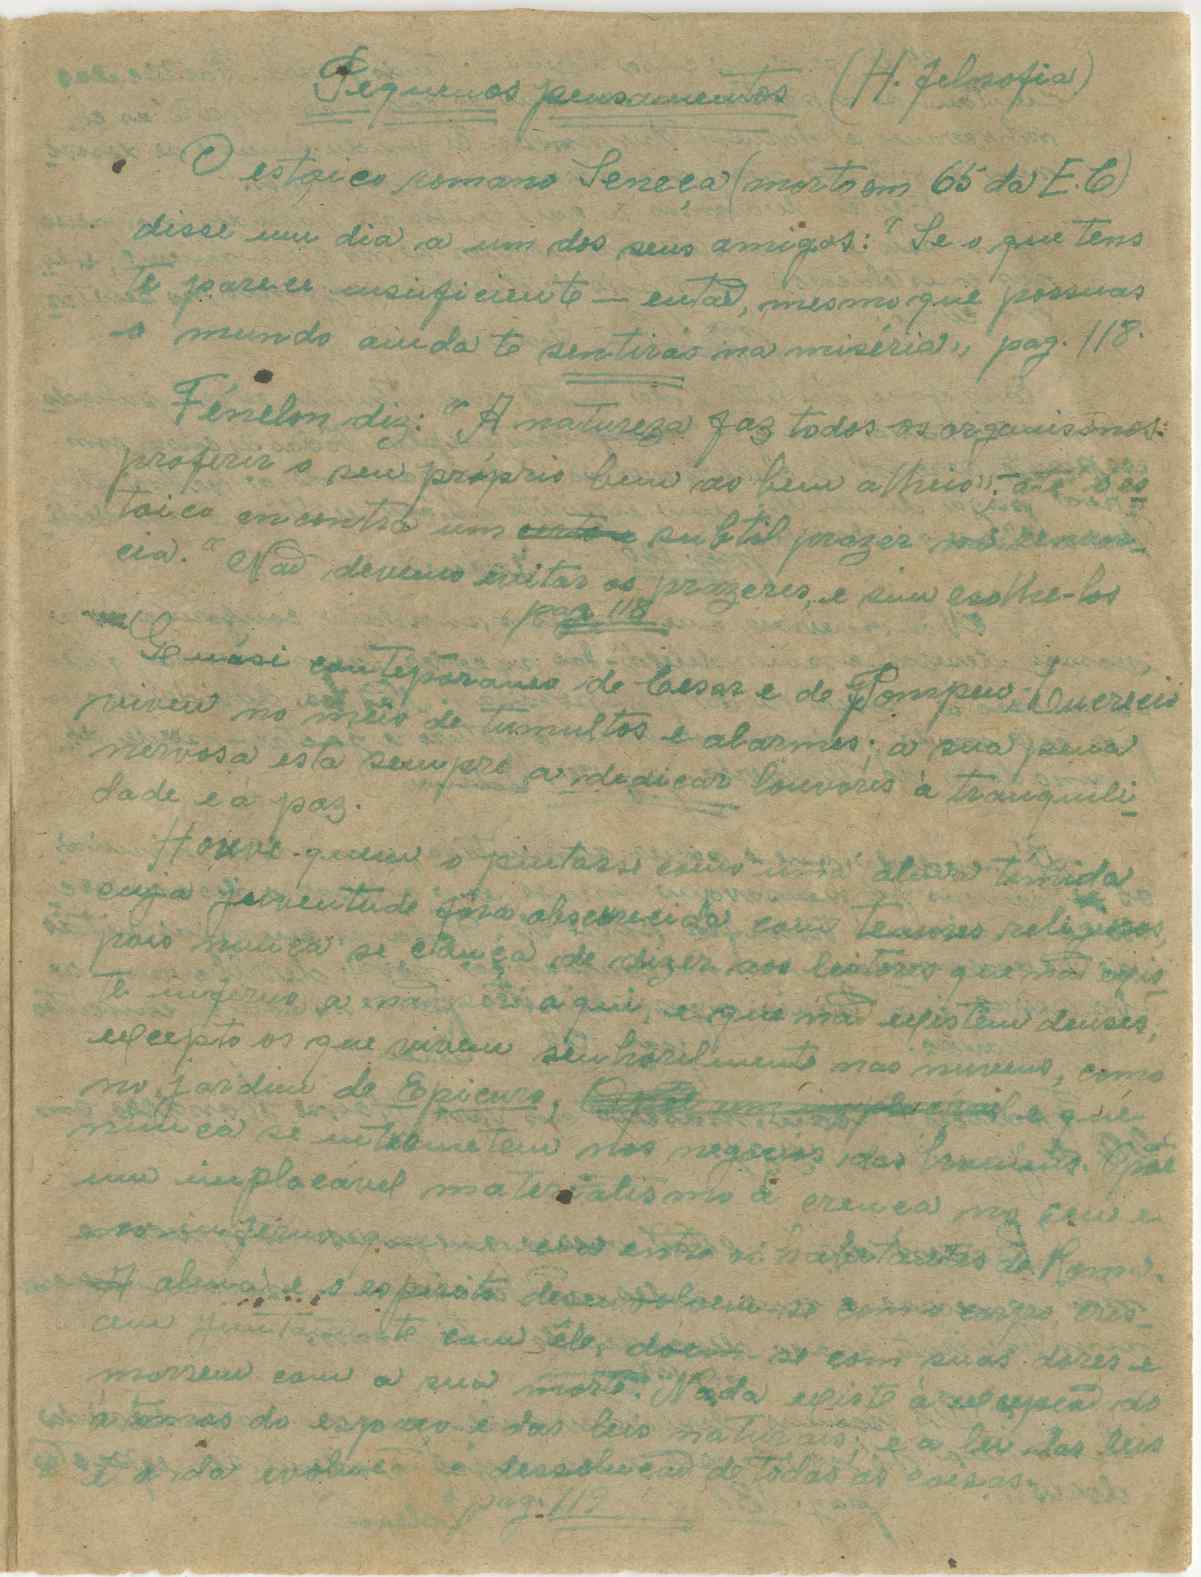 Pequenos pensamentos (H. filosofia)
O estoico romano Seneca (morto em 65 da E.C)
disse um dia a um dos seus amigos: "Se o que tens
te parece insuficiente — então, mesmo que possuas
o mundo ainda te sentirás na miséria", pag. 118.
Fénelon diz: "A natureza faz todos os organismos
proferir o seu próprio bem ao bem alheio: até o es
toico encontra um certo subtil prazer na renun-
cia." Não devemo evitar os prazeres, e sim escolhe-los
pag. 118
Quási contemporaneo de Cesar e de Pompeu, Lucrecio
viveu no meio de tumultos e alarmes; a sua pena
nervosa está sempre a dedicar louvores à tranquili
dade e à paz.
Houve quem o pintasse como uma alma tímida
cuja juventude fôra obscurecida com temores religiosos,
pois nunca se cança de dizer aos leitores que não exis
te inferno a não ser aqui, e que não existem deuses,
excepto os que vivem senhorilmente nas nuvens, como
no jardim de Epicuro, e que
nunca se intrometem nos negócios dos homens. Opõe
um implacável materialismo à crença no ceu e
no inferno entre os habitantes de Roma.
A alma e o espirito desenvolvem-se como corpo, cres-
cem juntamente com êle, doem-se com suas dores e
morrem com a sua morte. Nada existe à excepção do
átomos do espaço e das leis naturais; e a lei das leis
é a da evolução e dessolução de todas as coisas.
pag. 119